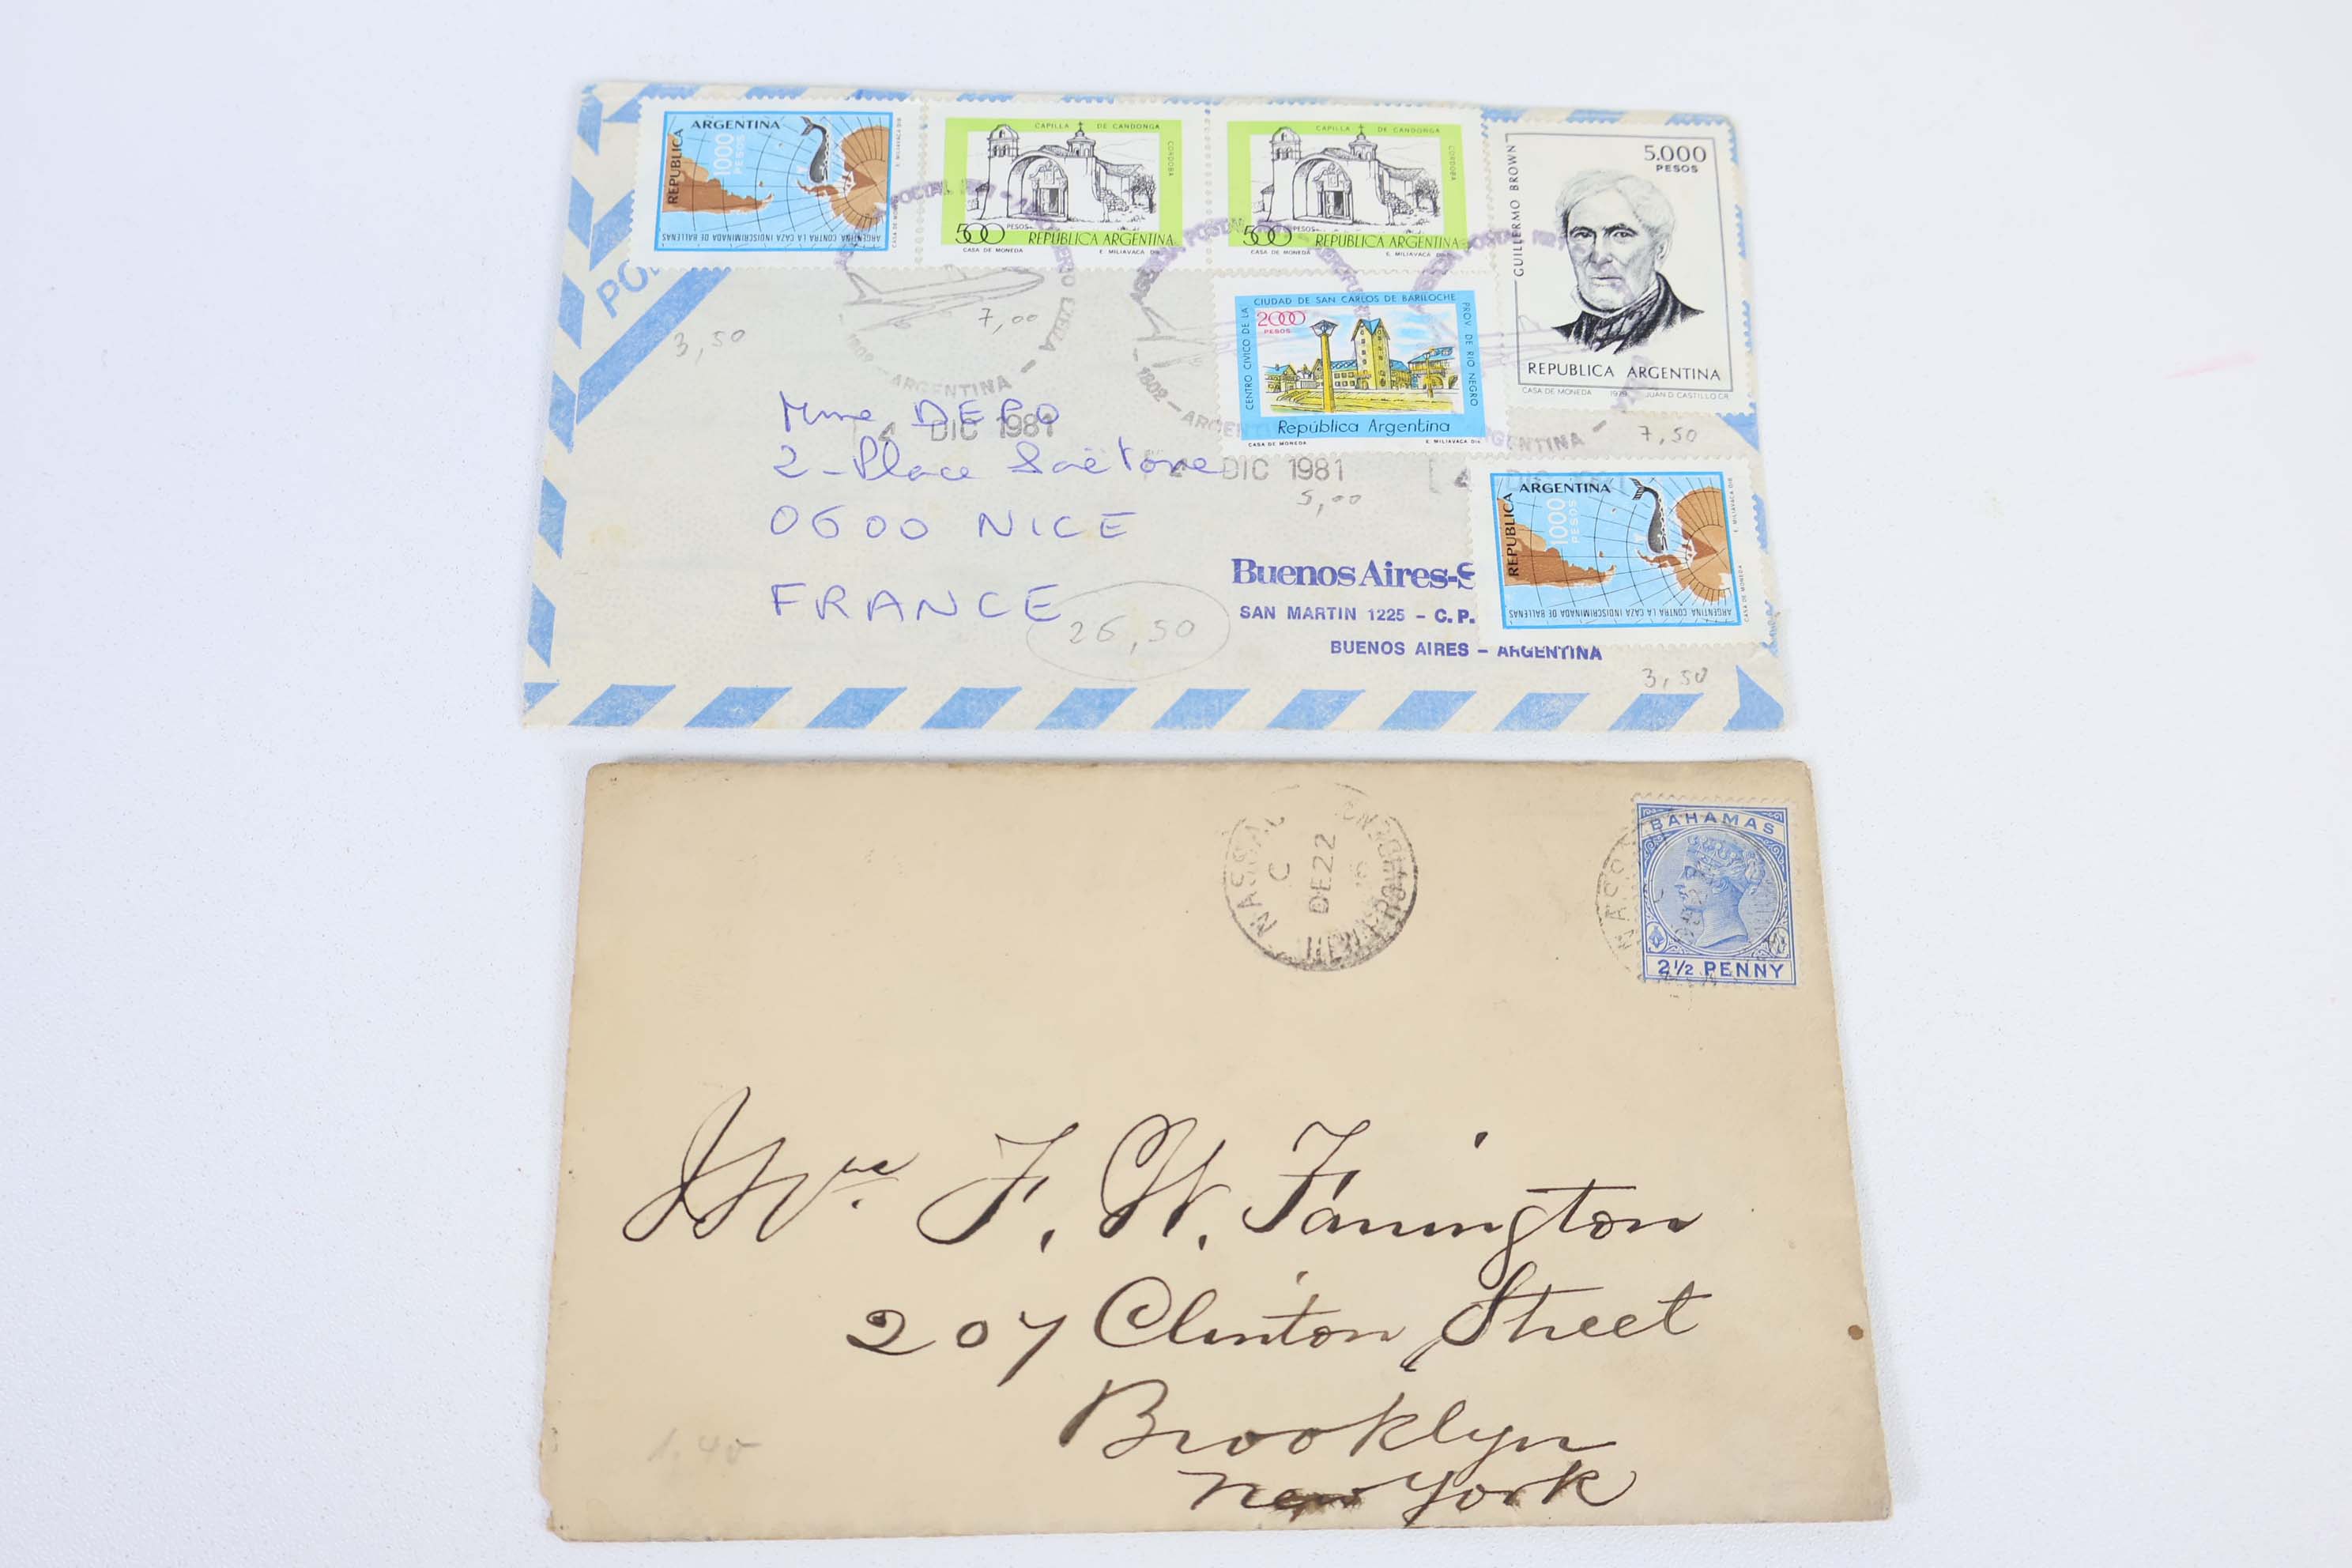 REPUBLICA ARGENTINA
1000 PESOS
ARGENTINA CONTRA LA CAZA INDISCRIMINADA DE BALLENAS
CASA DE MONEDA E. MILIAVACA DIB.
CAPILLA DE CANDONGA
CORDOBA
500 PESOS REPUBLICA ARGENTINA
CASA DE MONEDA E. MILIAVACA DIB.
CAPILLA DE CANDONGA
CORDOBA
500 PESOS REPUBLICA ARGENTINA
CASA DE MONEDA E. MILIAVACA DIB.
5.000
PESOS
GUILLERMO BROWN
REPUBLICA ARGENTINA
CASA DE MONEDA 1979 JUAN D. CASTILLO GR.
CENTRO CIVICO DE LA
CIUDAD DE SAN CARLOS DE BARILOCHE
PROV. DE RIO NEGRO
2000
PESOS
República Argentina
CASA DE MONEDA E. MILIAVACA DIB.
POSTAL
1802 - ARGENTINA -
DIC 1981
1802 - ARGENTINA
DIC 1981
ARGENTINA -
3,50
7,00
7,50
5,00
Mme DEPO
2 - Place Saëtone
0600 NICE
FRANCE
26,50
REPUBLICA ARGENTINA
1000 PESOS
ARGENTINA CONTRA LA CAZA INDISCRIMINADA DE BALLENAS
CASA DE MONEDA E. MILIAVACA DIB.
Buenos Aires-S
SAN MARTIN 1225 - C.P.
BUENOS AIRES - ARGENTINA
3,50
NASSAU
C
DE 22
NEW PROVIDENCE
BAHAMAS
2½ PENNY
Mrs. F. W. Farrington
207 Clinton Street
Brooklyn
New York
1.40